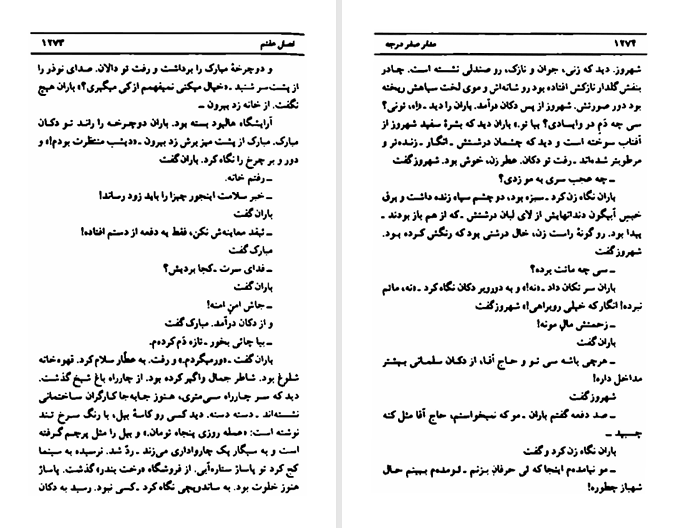 فصل هفتم ۱۲۷۳
و دوچرخهٔ مبارک را برداشت و رفت تو دالان. صدای نوذر را
از پشت سر شنید ـ «خیال میکنی نمیفهمم ازکی میگیری؟» باران هیچ
نگفت. از خانه زد بیرون ـ
آرایشگاه هالیود بسته بود. باران دوچرخه را راند تو دکان
مبارک. مبارک از پشت میز پرش زد بیرون ـ «دیشب منتظرت بودم!» و
دور و بر چرخ را نگاه کرد. باران گفت
ـ رفتم خانه.
ـ خبر سلامت اینجور چیزا را باید زود رساند!
باران گفت
ـ نیفد معاینه‌ش نکن، فقط یه دفعه از دستم افتاده!
مبارک گفت
ـ فدای سرت ـ کجا بردیش؟
باران گفت
ـ جاش امن امنه!
و از دکان درآمد. مبارک گفت
ـ بیا چائی بخور ـ تازه دَم کرده‌م.
باران گفت ـ «ورمیگردم.» و رفت. به عطّار سلام کرد. قهوه‌خانه
شلوغ بود. شاطر جمال واگیر کرده بود. از چارراه باغ شیخ گذشت.
دید که سر چارراه سی‌متری، هنوز جابه‌جا کارگران ساختمانی
نشسته‌اند ـ دسته دسته. دید کسی رو کاسهٔ بیل، با رنگ سرخ تند
نوشته است: «عمله روزی پنجاه تومان.» و بیل را مثل پرچم گرفته
است و به سیگار پک چارواداری می‌زند ـ ردّ شد. نرسیده به سینما
کج کرد تو پاساژ ستاره‌آبی. از فروشگاه «رخت بندر» گذشت. پاساژ
هنوز خلوت بود. به ساندویچی نگاه کرد ـ کسی نبود. رسید به دکان
۱۲۷۴ مدار صفر درجه
شهروز. دید که زنی، جوان و نازک، رو صندلی نشسته است. چادر
بنفش گلدار نازکش افتاده بود رو شانه‌اش و موی لخت سیاهش ریخته
بود دور صورتش. شهروز از پس دکان درآمد. باران را دید ـ «ا»، توئی؟
سی چه دَم در وایسادی؟ بیا تو.» باران دید که بشرهٔ سفید شهروز از
آفتاب سوخته است و دید که چشمان درشتش ـ انگار ـ زنده‌تر و
مرطوبتر شده‌اند ـ رفت تو دکان. عطر زن، خوش بود. شهروز گفت
ـ چه عجب سری به مو زدی؟
باران نگاه زن کرد ـ سبزه بود، دو چشم سیاه زنده داشت و برق
خیس آبیگون دندانهایش از لای لبان درشتش ـ که از هم باز بودند ـ
پیدا بود. رو گونهٔ راست زن، خال درشتی بود که رنگش کرده بود.
شهروز گفت
ـ سی چه ماتت برده؟
باران سر تکان داد ـ «نه!» و به دوروبر دکان نگاه کرد ـ «نه، ماتم
نبرده! انگار که خیلی روبراهی!» شهروز گفت
ـ زحمتش مال مونه!
باران گفت
ـ هرچی باشه سی تو و حاج آقا، از دکان سلمانی بیشتر
مداخل داره!
شهروز گفت
ـ صد دفعه گفتم باران ـ مو که نمیخواستم، حاج آقا مثل کنه
چسبید ـ
باران نگاه زن کرد و گفت
ـ مو نیامده‌م اینجا که ئی حرفان بزنم ـ اومده‌م ببینم حال
شهباز چطوره!